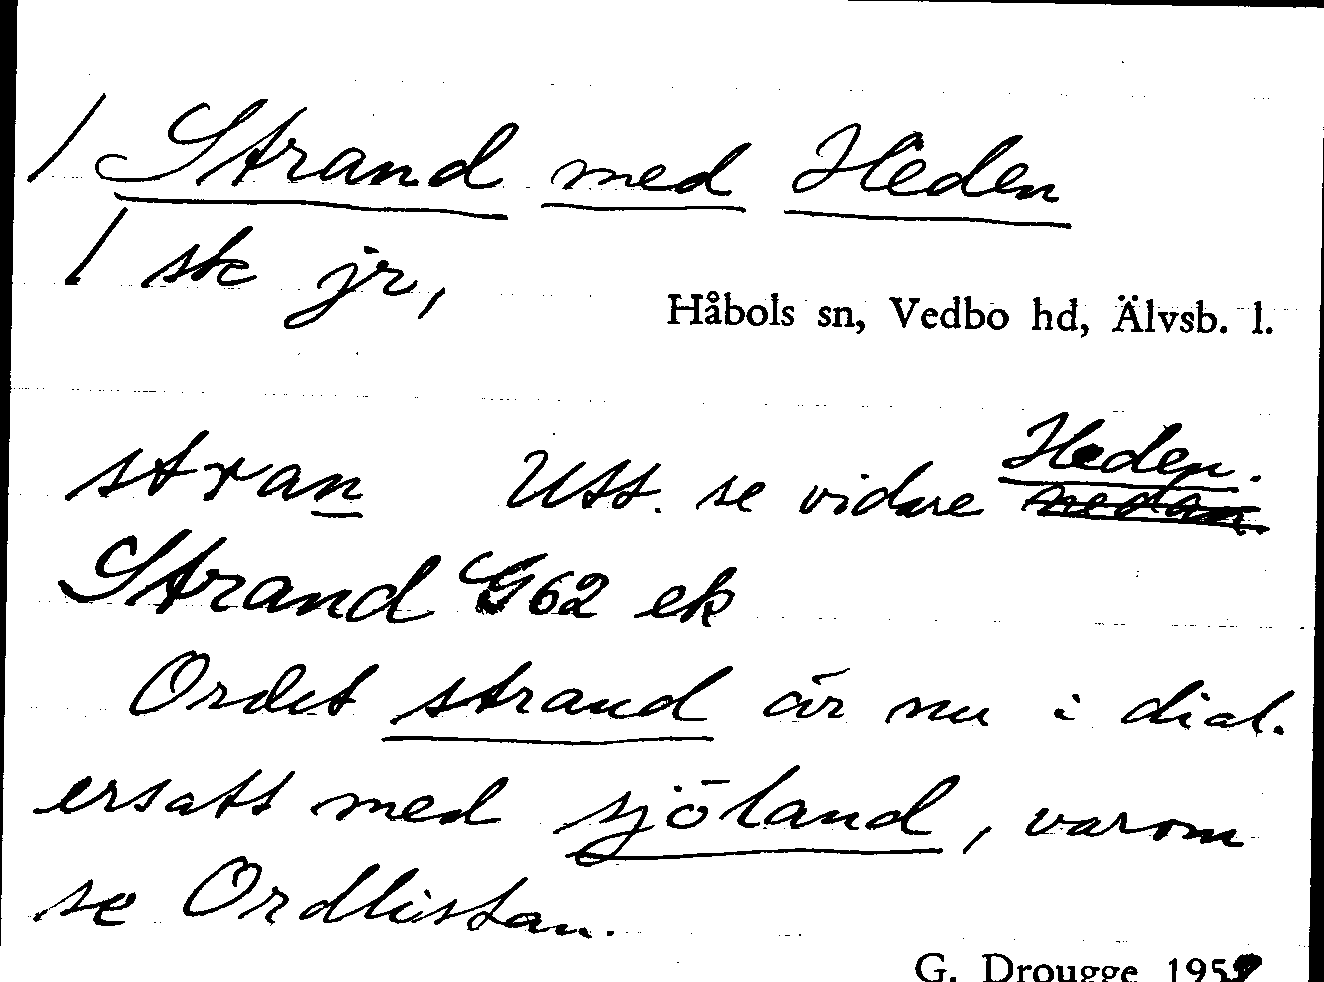 / Strand med Heden
/ sk jr,
Håbols sn, Vedbo hd, Älvsb. l.
stran Utt. se vidare Heden.
Strand G62 ek
Ordet strand är nu i dial.
ersatt med sjöland, varom
se Ordlistan.
G. Drougge 195